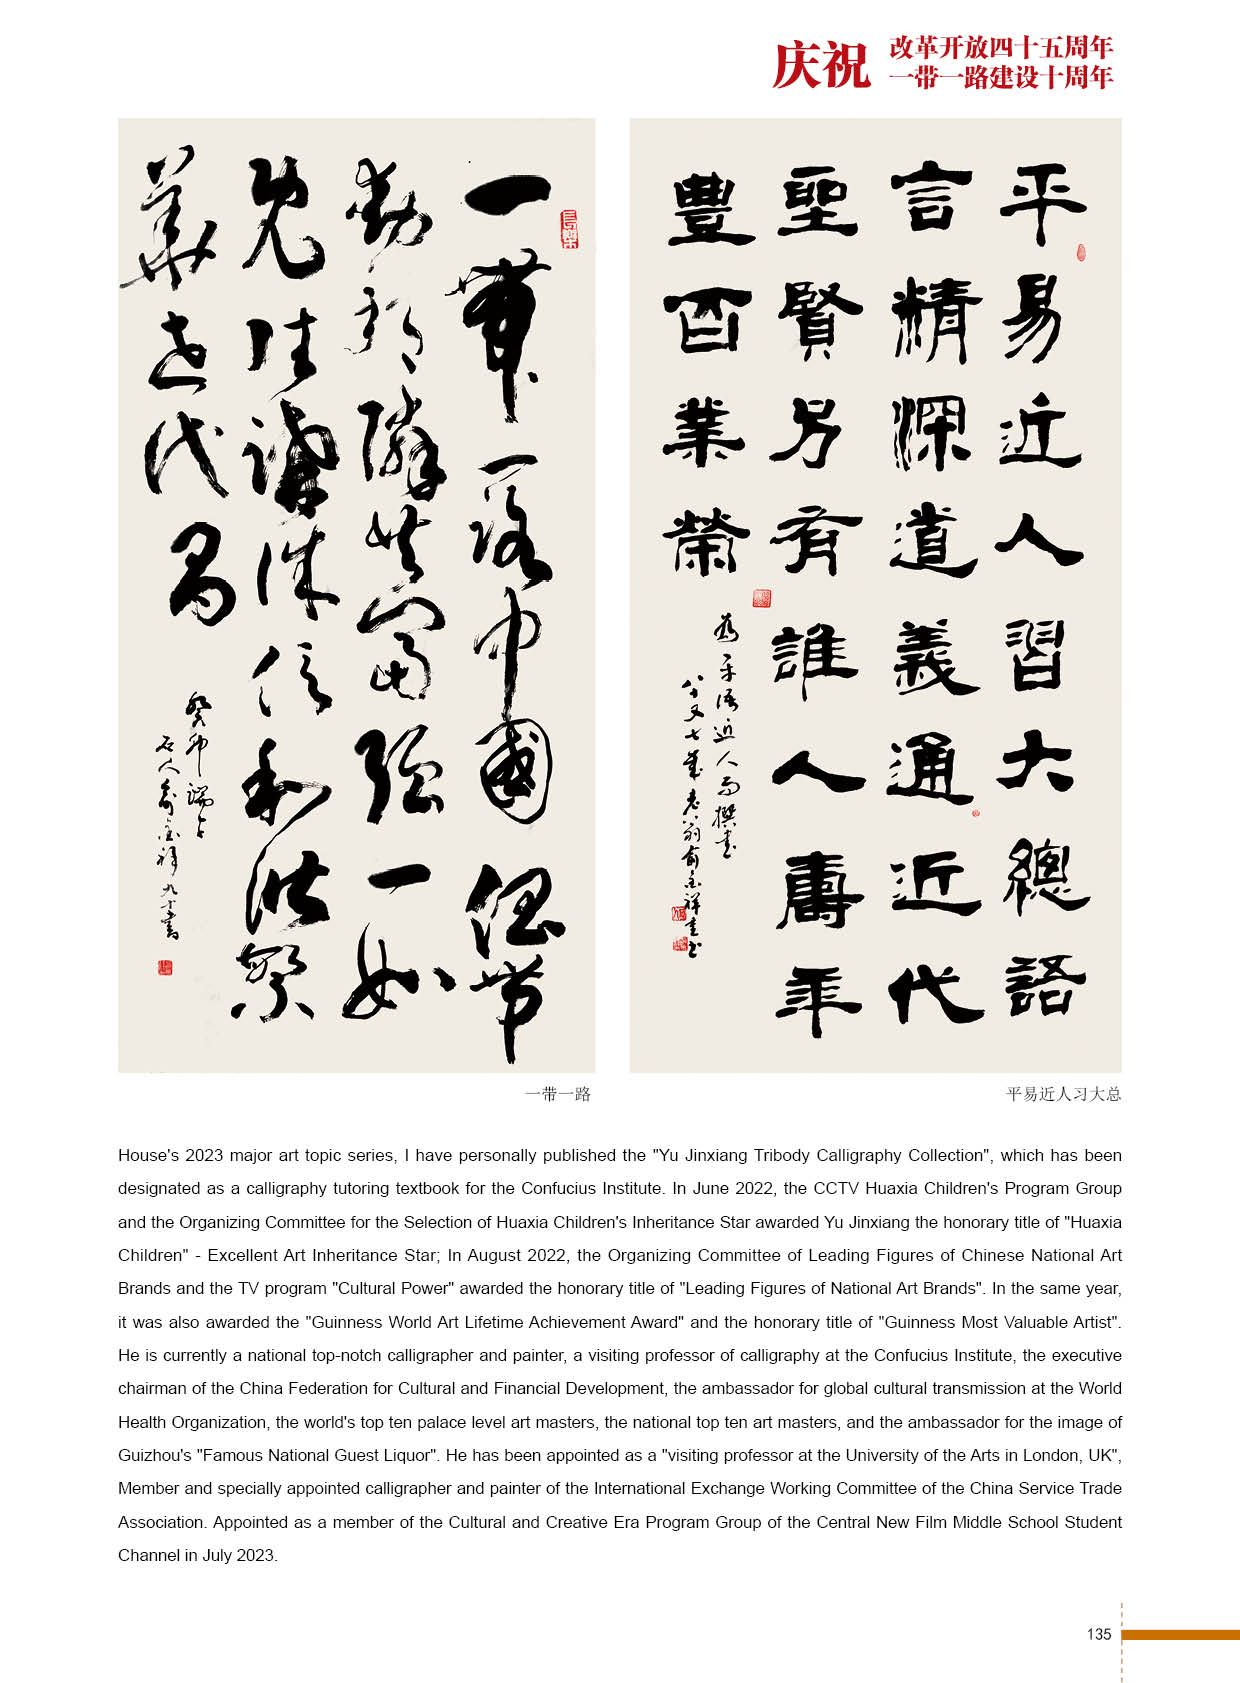 庆祝
改革开放四十五周年
一带一路建设十周年
一帶一路中國
隣共富強一如
往誠信利
華世代昌
癸卯端午
平易近人習大總語
言精深道義通近代
聖賢有誰人壽年
豐百業榮
一带一路
平易近人习大总
House's 2023 major art topic series, I have personally published the "Yu Jinxiang Tribody Calligraphy Collection", which has been
designated as a calligraphy tutoring textbook for the Confucius Institute. In June 2022, the CCTV Huaxia Children's Program Group
and the Organizing Committee for the Selection of Huaxia Children's Inheritance Star awarded Yu Jinxiang the honorary title of "Huaxia
Children" - Excellent Art Inheritance Star; In August 2022, the Organizing Committee of Leading Figures of Chinese National Art
Brands and the TV program "Cultural Power" awarded the honorary title of "Leading Figures of National Art Brands". In the same year,
it was also awarded the "Guinness World Art Lifetime Achievement Award" and the honorary title of "Guinness Most Valuable Artist".
He is currently a national top-notch calligrapher and painter, a visiting professor of calligraphy at the Confucius Institute, the executive
chairman of the China Federation for Cultural and Financial Development, the ambassador for global cultural transmission at the World
Health Organization, the world's top ten palace level art masters, the national top ten art masters, and the ambassador for the image of
Guizhou's "Famous National Guest Liquor". He has been appointed as a "visiting professor at the University of the Arts in London, UK",
Member and specially appointed calligrapher and painter of the International Exchange Working Committee of the China Service Trade
Association. Appointed as a member of the Cultural and Creative Era Program Group of the Central New Film Middle School Student
Channel in July 2023.
135